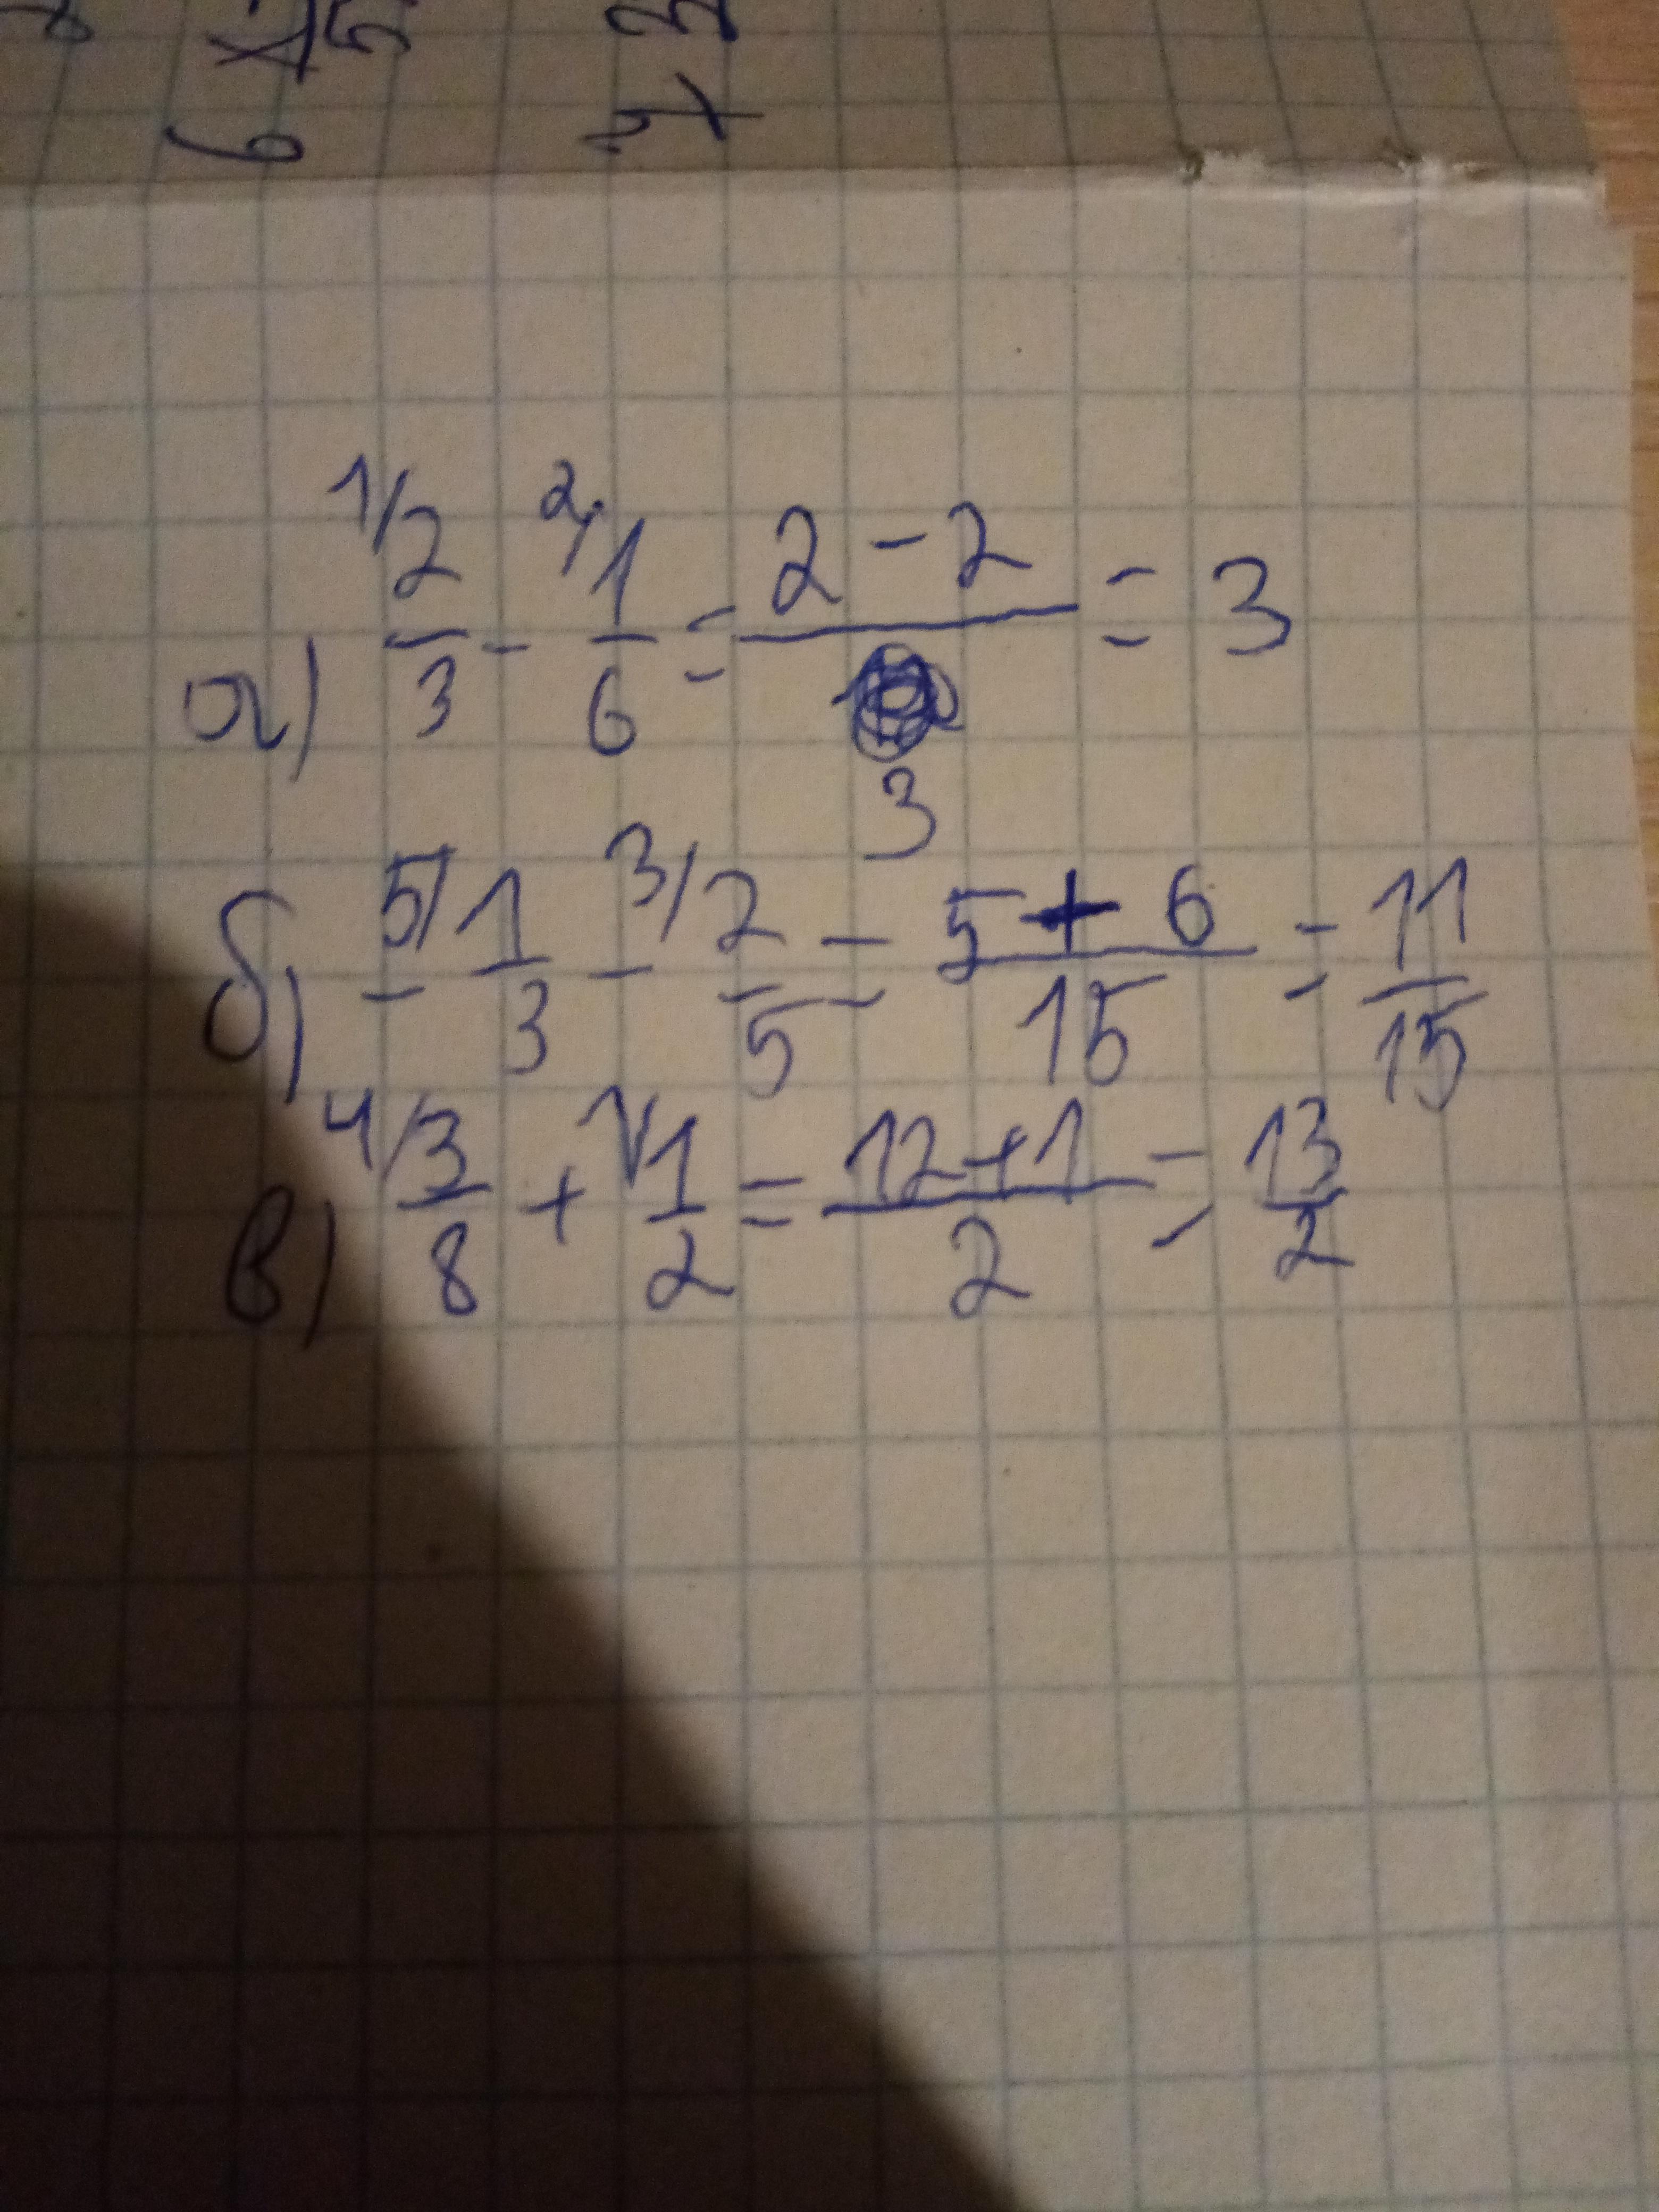 а) 1/ 2/3 - 2/ 1/6 = (2 - 2)/3 = 3
б) - 5/ 1/3 - 3/ 2/5 = (5 + 6)/15 = 11/15
в) 4/ 3/8 + 1/ 1/2 = (12 + 1)/2 = 13/2